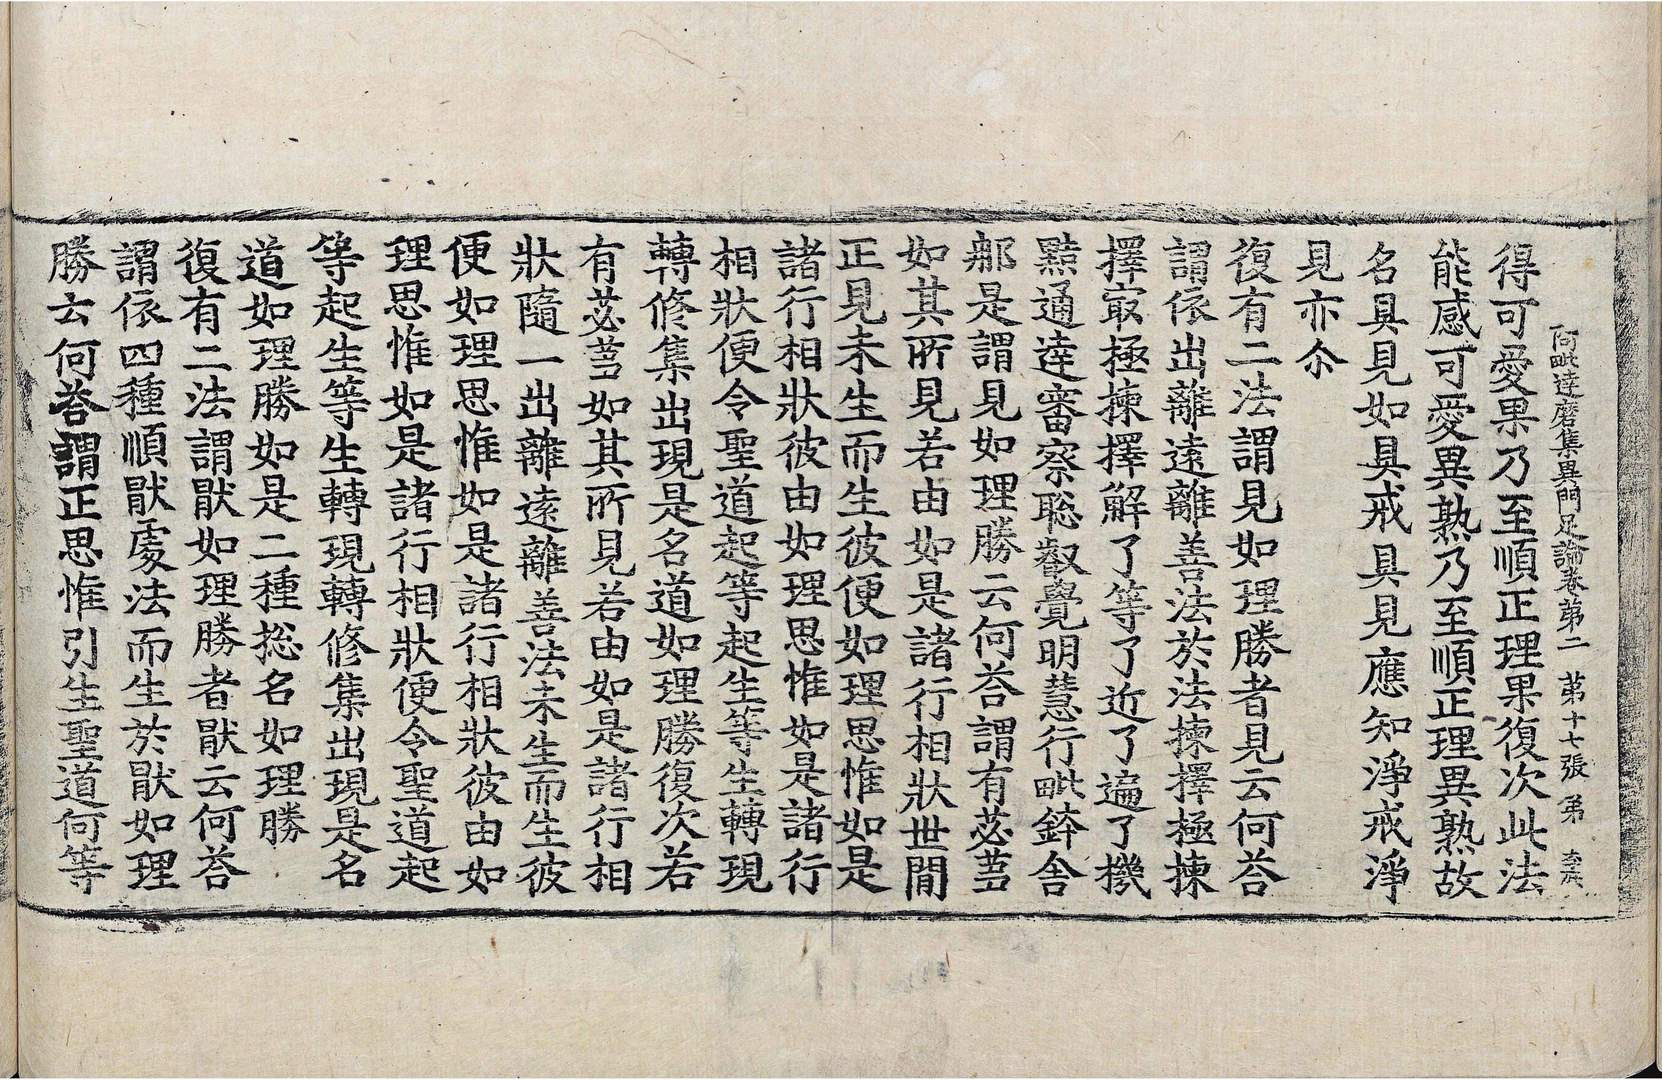 阿毗達磨集異門足論卷第二　第十七張　弟
得可愛果乃至順正理果復次此法
能感可愛異熟乃至順正理異熟故
名具見如具戒具見應知淨戒淨
見亦尒
復有二法謂見如理勝者見云何荅
謂依出離遠離善法於法揀擇極揀
擇㝡極揀擇解了等了近了遍了機
黠通達審察聡叡覺明慧行毗鉢舍
那是謂見如理勝云何荅謂有苾芻
如其所見若由如是諸行相狀世間
正見未生而生彼便如理思惟如是
諸行相狀彼由如理思惟如是諸行
相狀便令聖道起等起生等生轉現
轉修集出現是名道如理勝復次若
有苾芻如其所見若由如是諸行相
狀隨一出離遠離善法未生而生彼
便如理思惟如是諸行相狀彼由如
理思惟如是諸行相狀便令聖道起
等起生等生轉現轉修集出現是名
道如理勝如是二種捴名如理勝
復有二法謂猒如理勝者猒云何荅
謂依四種順猒處法而生於猒如理
勝云何荅謂正思惟引生聖道何等